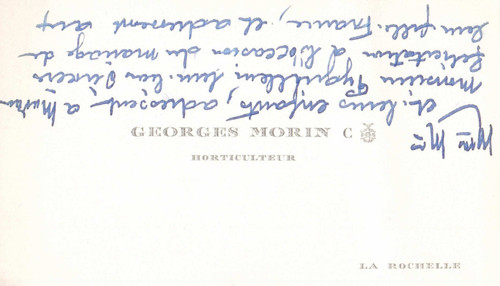 GEORGES MORIN C
HORTICULTEUR
LA ROCHELLE
et leurs enfants, adressent à
Monsieur leurs
félicitations à l'occasion du mariage de
leur fille France, et adressent aux